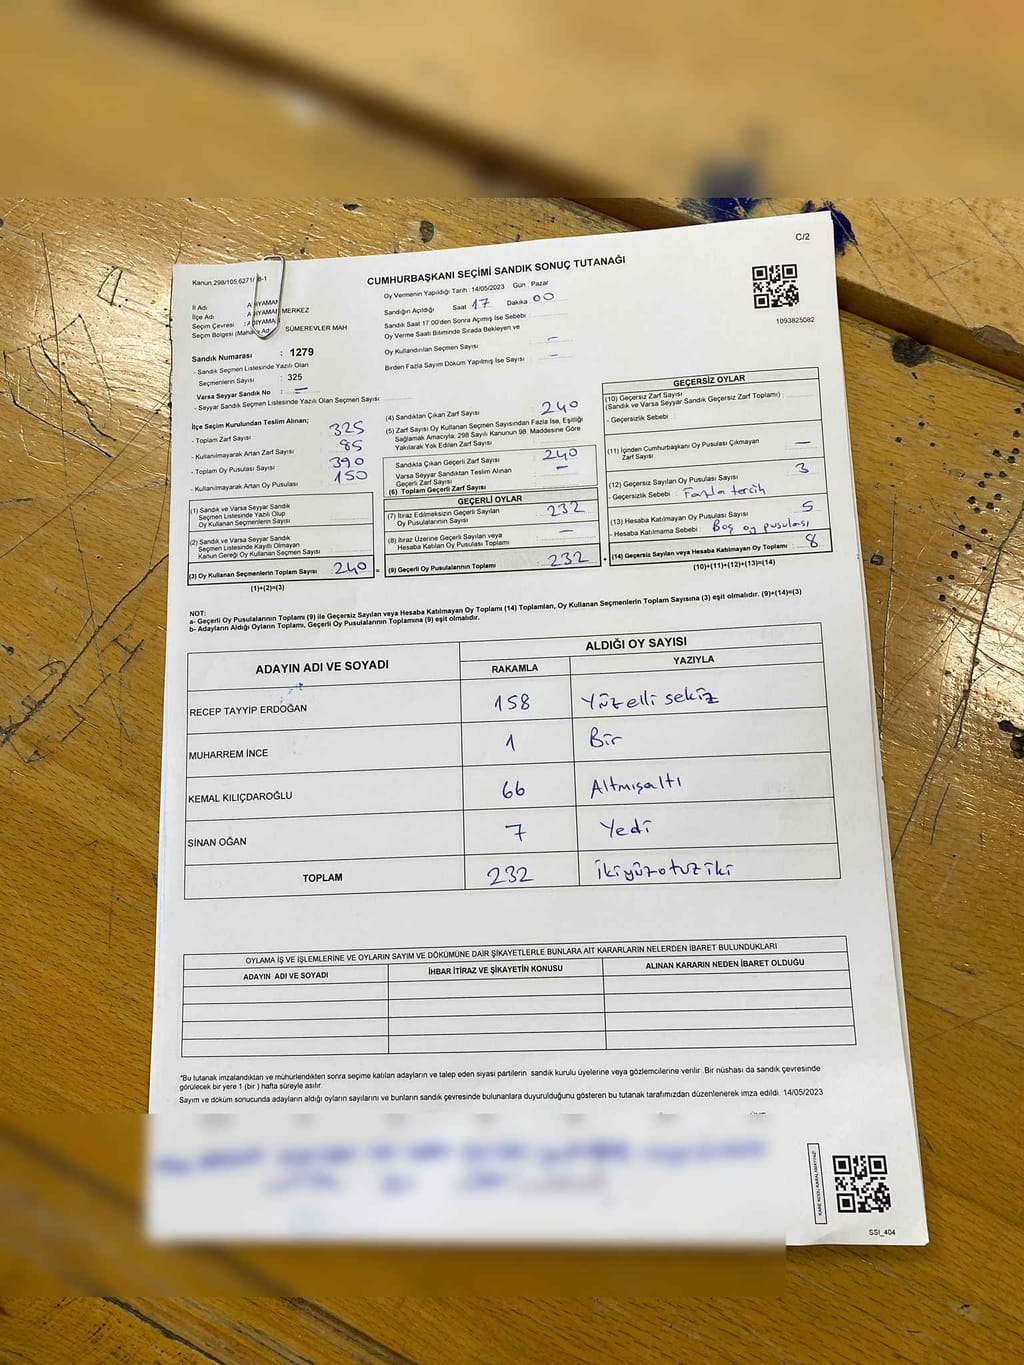 C/2
Kanun:298/105,6271/ B-1
CUMHURBAŞKANI SEÇİMİ SANDIK SONUÇ TUTANAĞI
1093825082
İl Adı : ADIYAMAN
İlçe Adı : ADIYAMAN MERKEZ
Seçim Çevresi : ADIYAMAN
Seçim Bölgesi (Mahalle Adı) SÜMEREVLER MAH
Sandık Numarası : 1279
- Sandık Seçmen Listesinde Yazılı Olan
Seçmenlerin Sayısı : 325
Varsa Seyyar Sandık No : –
- Seyyar Sandık Seçmen Listesinde Yazılı Olan Seçmen Sayısı
Oy Vermenin Yapıldığı Tarih : 14/05/2023 Gün : Pazar
Sandığın Açıldığı Saat 17 Dakika 00
Sandık Saat 17 00'den Sonra Açımış İse Sebebi :
Oy Verme Saati Bitiminde Sırada Bekleyen ve
Oy Kullandırılan Seçmen Sayısı : –
Birden Fazla Sayım Döküm Yapılmış İse Sayısı : –
İlçe Seçim Kurulundan Teslim Alınan;
- Toplam Zarf Sayısı : 325
- Kullanılmayarak Artan Zarf Sayısı : 85
- Toplam Oy Pusulası Sayısı : 390
- Kullanılmayarak Artan Oy Pusulası : 150
(1) Sandık ve Varsa Seyyar Sandık
Seçmen Listesinde Yazılı Olup
Oy Kullanan Seçmenlerin Sayısı
(2) Sandık ve Varsa Seyyar Sandık
Seçmen Listesinde Kayıtlı Olmayan
Kanun Gereği Oy Kullanan Seçmen Sayısı
(3) Oy Kullanan Seçmenlerin Toplam Sayısı : 240 =
(1)+(2)=(3)
(4) Sandıktan Çıkan Zarf Sayısı : 240
(5) Zarf Sayısı Oy Kullanan Seçmen Sayısından Fazla İse, Eşitliği
Sağlamak Amacıyla; 298 Sayılı Kanunun 98. Maddesine Göre
Yakılarak Yok Edilen Zarf Sayısı :
Sandıkta Çıkan Geçerli Zarf Sayısı : 240
Varsa Seyyar Sandıktan Teslim Alınan
Geçerli Zarf Sayısı : –
(6) Toplam Geçerli Zarf Sayısı
GEÇERLİ OYLAR
(7) İtiraz Edilmeksizin Geçerli Sayılan
Oy Pusulalarının Sayısı : 232
(8) İtiraz Üzerine Geçerli Sayılan veya
Hesaba Katılan Oy Pusulası Toplamı : –
(9) Geçerli Oy Pusulalarının Toplamı : 232 +
GEÇERSİZ OYLAR
(10) Geçersiz Zarf Sayısı
(Sandık ve Varsa Seyyar Sandık Geçersiz Zarf Toplamı) :
- Geçersizlik Sebebi :
(11) İçinden Cumhurbaşkanı Oy Pusulası Çıkmayan
Zarf Sayısı : –
(12) Geçersiz Sayılan Oy Pusulası Sayısı : 3
- Geçersizlik Sebebi : Fazla tercih
(13) Hesaba Katılmayan Oy Pusulası Sayısı : 5
- Hesaba Katılmama Sebebi : Boş oy pusulası
(14) Geçersiz Sayılan veya Hesaba Katılmayan Oy Toplamı : 8
(10)+(11)+(12)+(13)=(14)
NOT:
a- Geçerli Oy Pusulalarının Toplamı (9) ile Geçersiz Sayılan veya Hesaba Katılmayan Oy Toplamı (14) Toplamları, Oy Kullanan Seçmenlerin Toplam Sayısına (3) eşit olmalıdır. (9)+(14)=(3)
b- Adayların Aldığı Oyların Toplamı, Geçerli Oy Pusulalarının Toplamına (9) eşit olmalıdır.
ADAYIN ADI VE SOYADI
ALDIĞI OY SAYISI
RAKAMLA YAZIYLA
RECEP TAYYİP ERDOĞAN 158 Yüzelli sekiz
MUHARREM İNCE 1 Bir
KEMAL KILIÇDAROĞLU 66 Altmışaltı
SİNAN OĞAN 7 Yedi
TOPLAM 232 ikiyüzotuziki
OYLAMA İŞ VE İŞLEMLERİNE VE OYLARIN SAYIM VE DÖKÜMÜNE DAİR ŞİKAYETLERLE BUNLARA AİT KARARLARIN NELERDEN İBARET BULUNDUKLARI
ADAYIN ADI VE SOYADI İHBAR İTİRAZ VE ŞİKAYETİN KONUSU ALINAN KARARIN NEDEN İBARET OLDUĞU
*Bu tutanak imzalandıktan ve mühürlendikten sonra seçime katılan adayların ve talep eden siyasi partilerin sandık kurulu üyelerine veya gözlemcilerine verilir .Bir nüshası da sandık çevresinde
görülecek bir yere 1 (bir ) hafta süreyle asılır.
Sayım ve döküm sonucunda adayların aldığı oyların sayılarını ve bunların sandık çevresinde bulunanlara duyurulduğunu gösteren bu tutanak tarafımızdan düzenlenerek imza edildi. 14/05/2023
KARE KODU KARALAMAYINIZ!
SSI_404